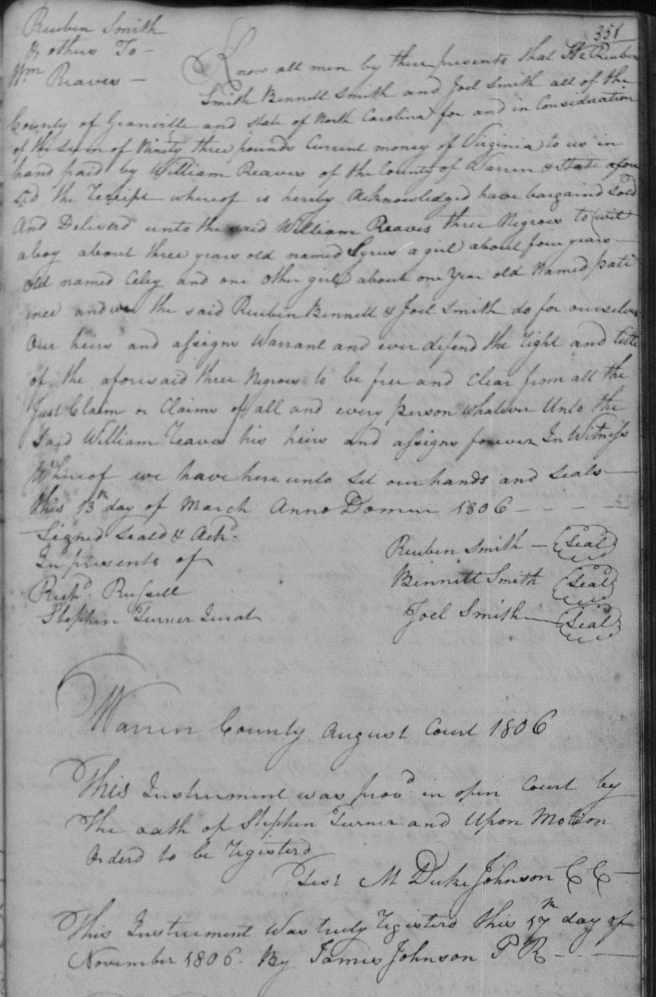 351
Reuben Smith
& others To
Wm Reaves —
Know all men by these presents that We Reuben
Smith Bennett Smith and Joel Smith all of the
County of Granville and State of North Carolina for and in Consideration
of the Sum of Ninty three pounds Current money of Virginia to us in
hand paid by William Reaves of the County of Warren & State afore
Sd the Receipt whereof is hereby Acknowledged have bargained Sold
And Deliverd unto the said William Reaves three Negroes to wit
a boy about three years old named Cyrus a girl about four years
old named Celey and one other girl about one Year old Named pati
ence and we the said Reuben Bennett & Joel Smith do for ourselves
Our heirs and assigns Warrant and ever defend the Right and title
of the aforesaid three Negroes to be free and Clear from all the
Just Claim or Claims of all and every person whatever Unto the
Said William Reaves his heirs and assigns forever In Witness
Whereof we have here unto Set our hands and Seals
this 13th day of March Anno Domini 1806
Signed Seald & Ackd.
In presents of
Richd. Russell
Stephen Turner Jurat
Reuben Smith — Seal
Bennett Smith Seal
Joel Smith — Seal
Warren County August Court 1806
This Instrument was provd in open Court by
the oath of Stephen Turner and Upon Motion
Orderd to be Registerd
Test M Duke Johnson C C
This Instrument Was truly Registerd this 17th day of
November 1806. By James Johnson P R